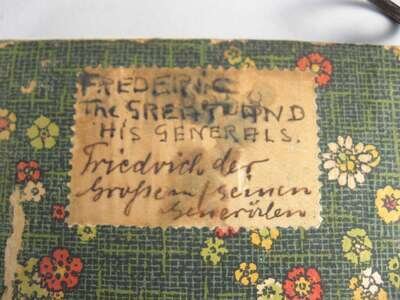 FREDERIC
The GREAT AND
HIS GENERALS.
Friedrich der
Großem / seinen
Generälen